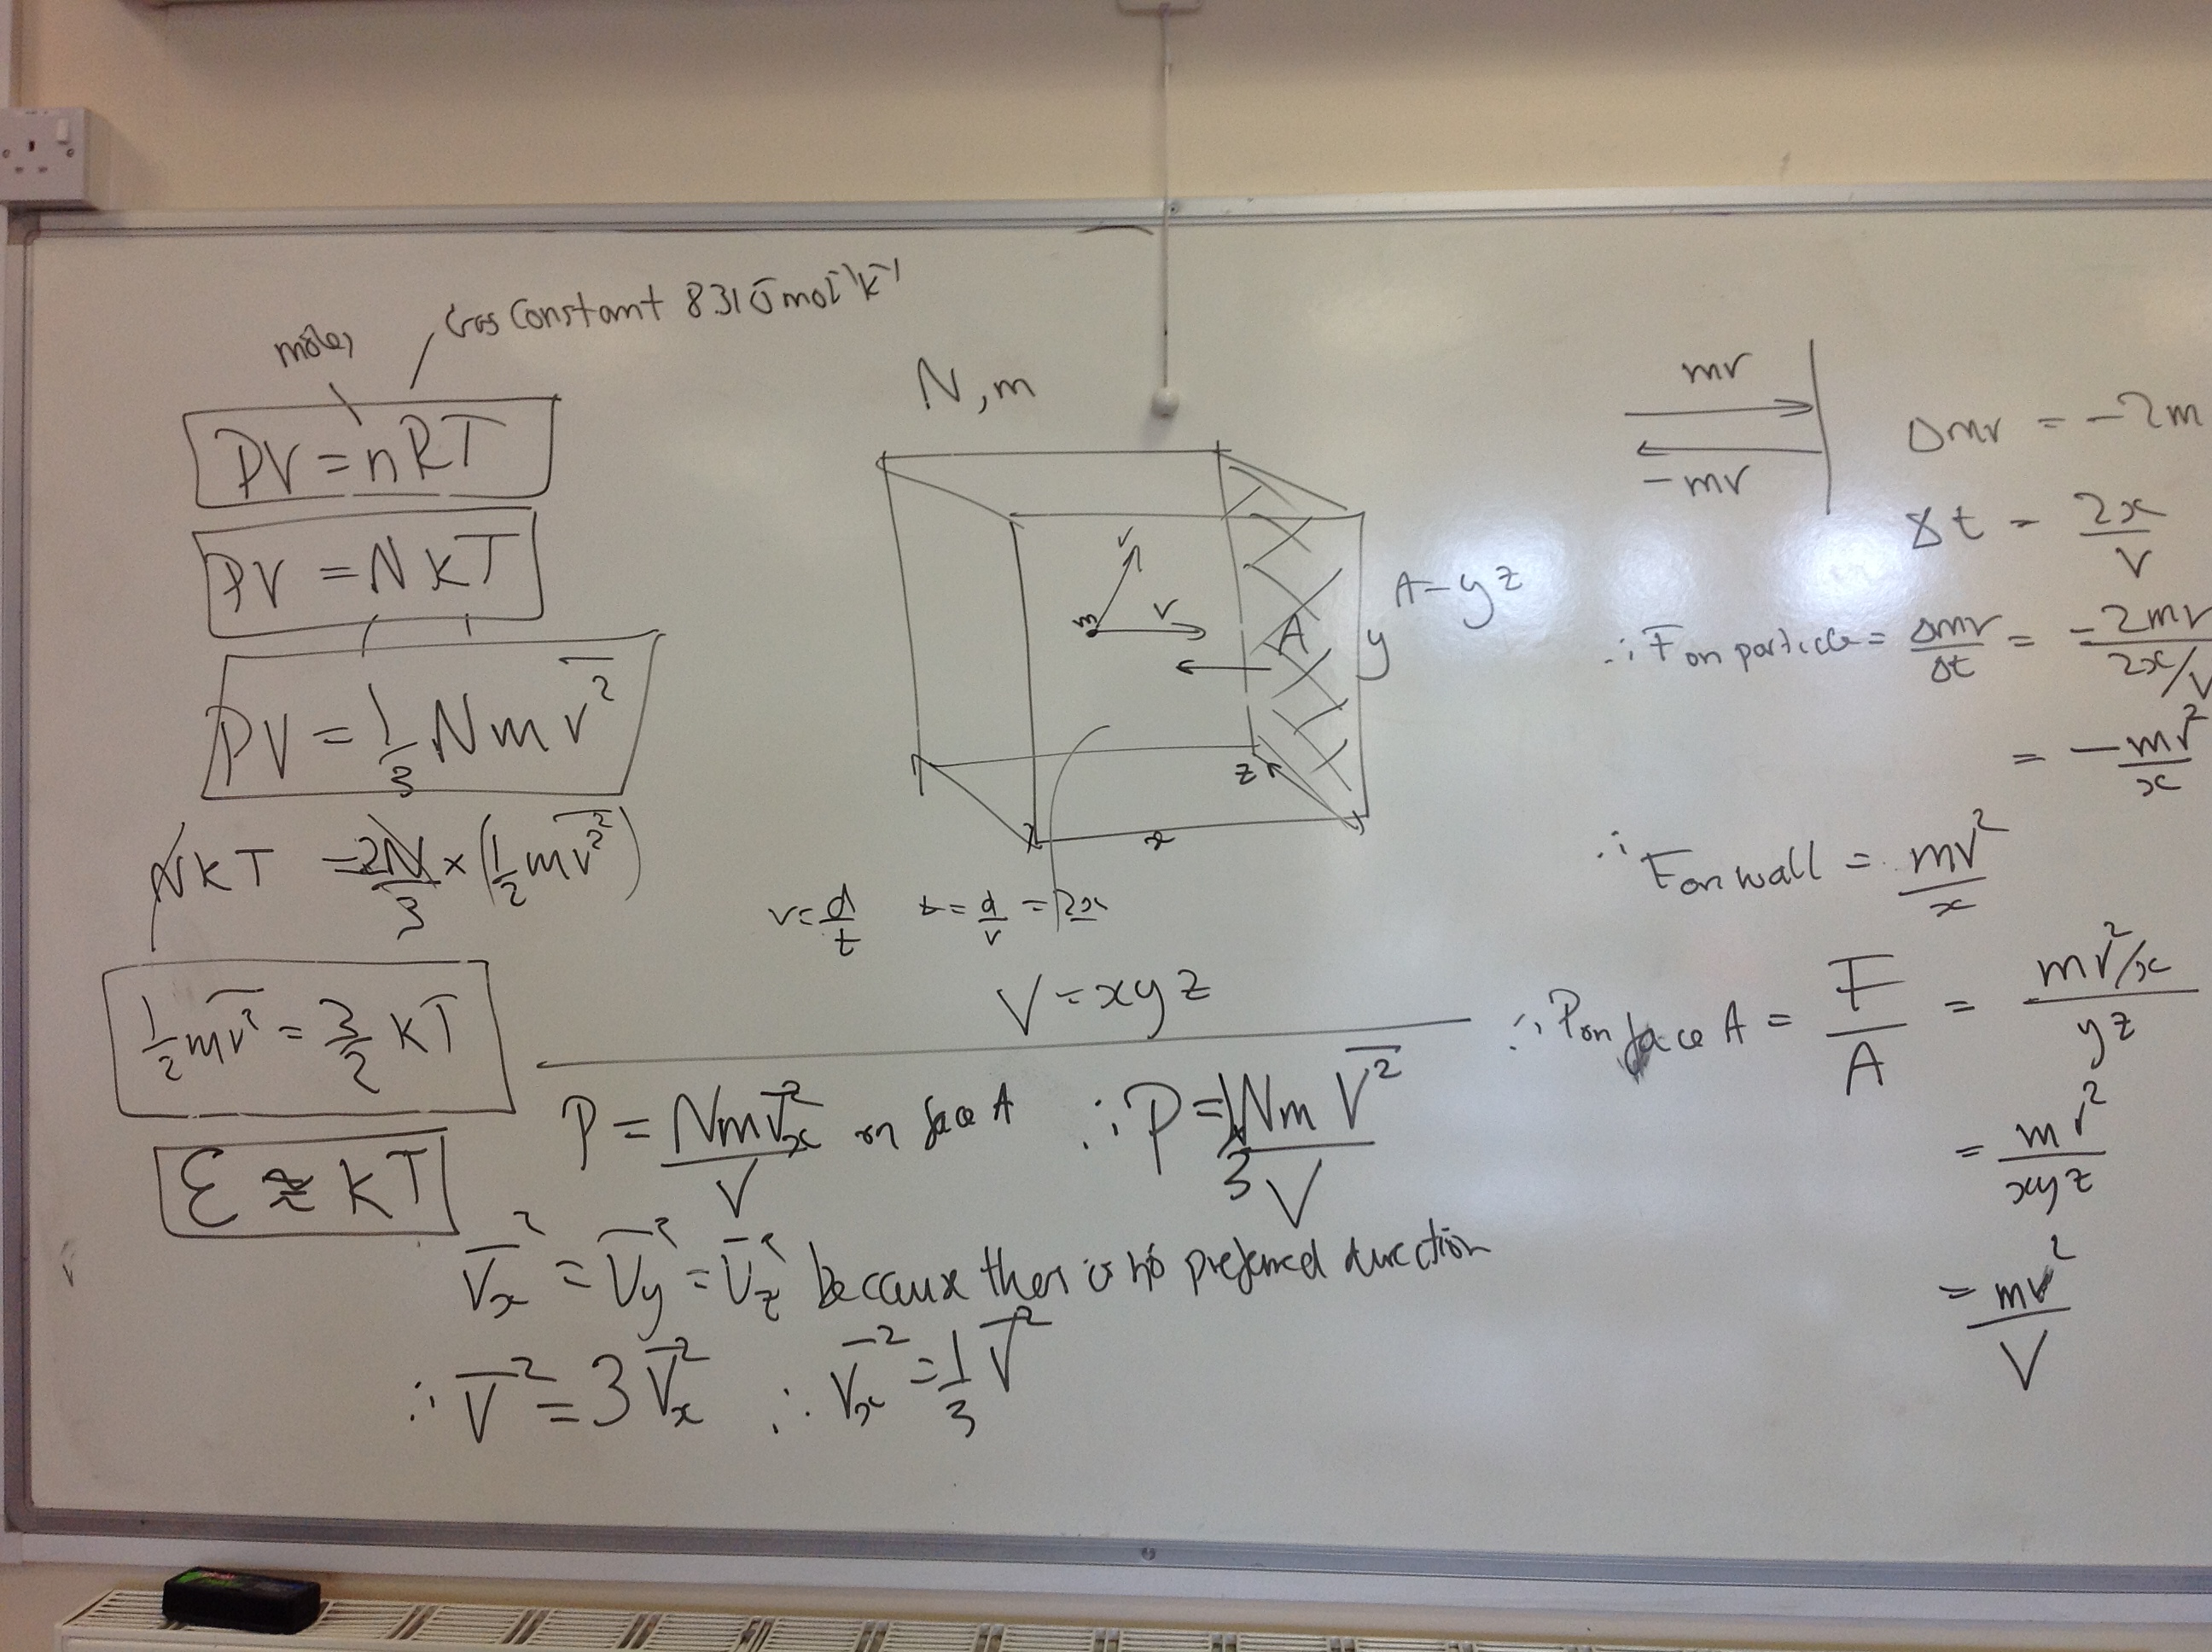 moles
Gas Constant 8.31 J mol⁻¹ K⁻¹
PV = nRT
PV = NkT
PV = 1/3 Nm v̄²
NKT = 2N/3 × (1/2 m v̄²)
1/2 m v̄² = 3/2 kT
ε ≈ kT
N, m
v
m
v
A
y
A = yz
z
x
v = d/t t = d/v = 2x
V = xyz
P = Nm v̄x²/V on face A ∴ P = 1/3 Nm v̄²/V
v̄x² = v̄y² = v̄z² because there is no preferred direction
∴ v̄² = 3 v̄x² ∴ v̄x² = 1/3 v̄²
mv
-mv
Δmv = -2m
Δt = 2x/v
∴ F on particle = Δmv/Δt = -2mv/(2x/v)
= -mv²/x
∴ F on wall = mv²/x
∴ P on face A = F/A = (mv²/x)/yz
= mv²/xyz
= mv²/V